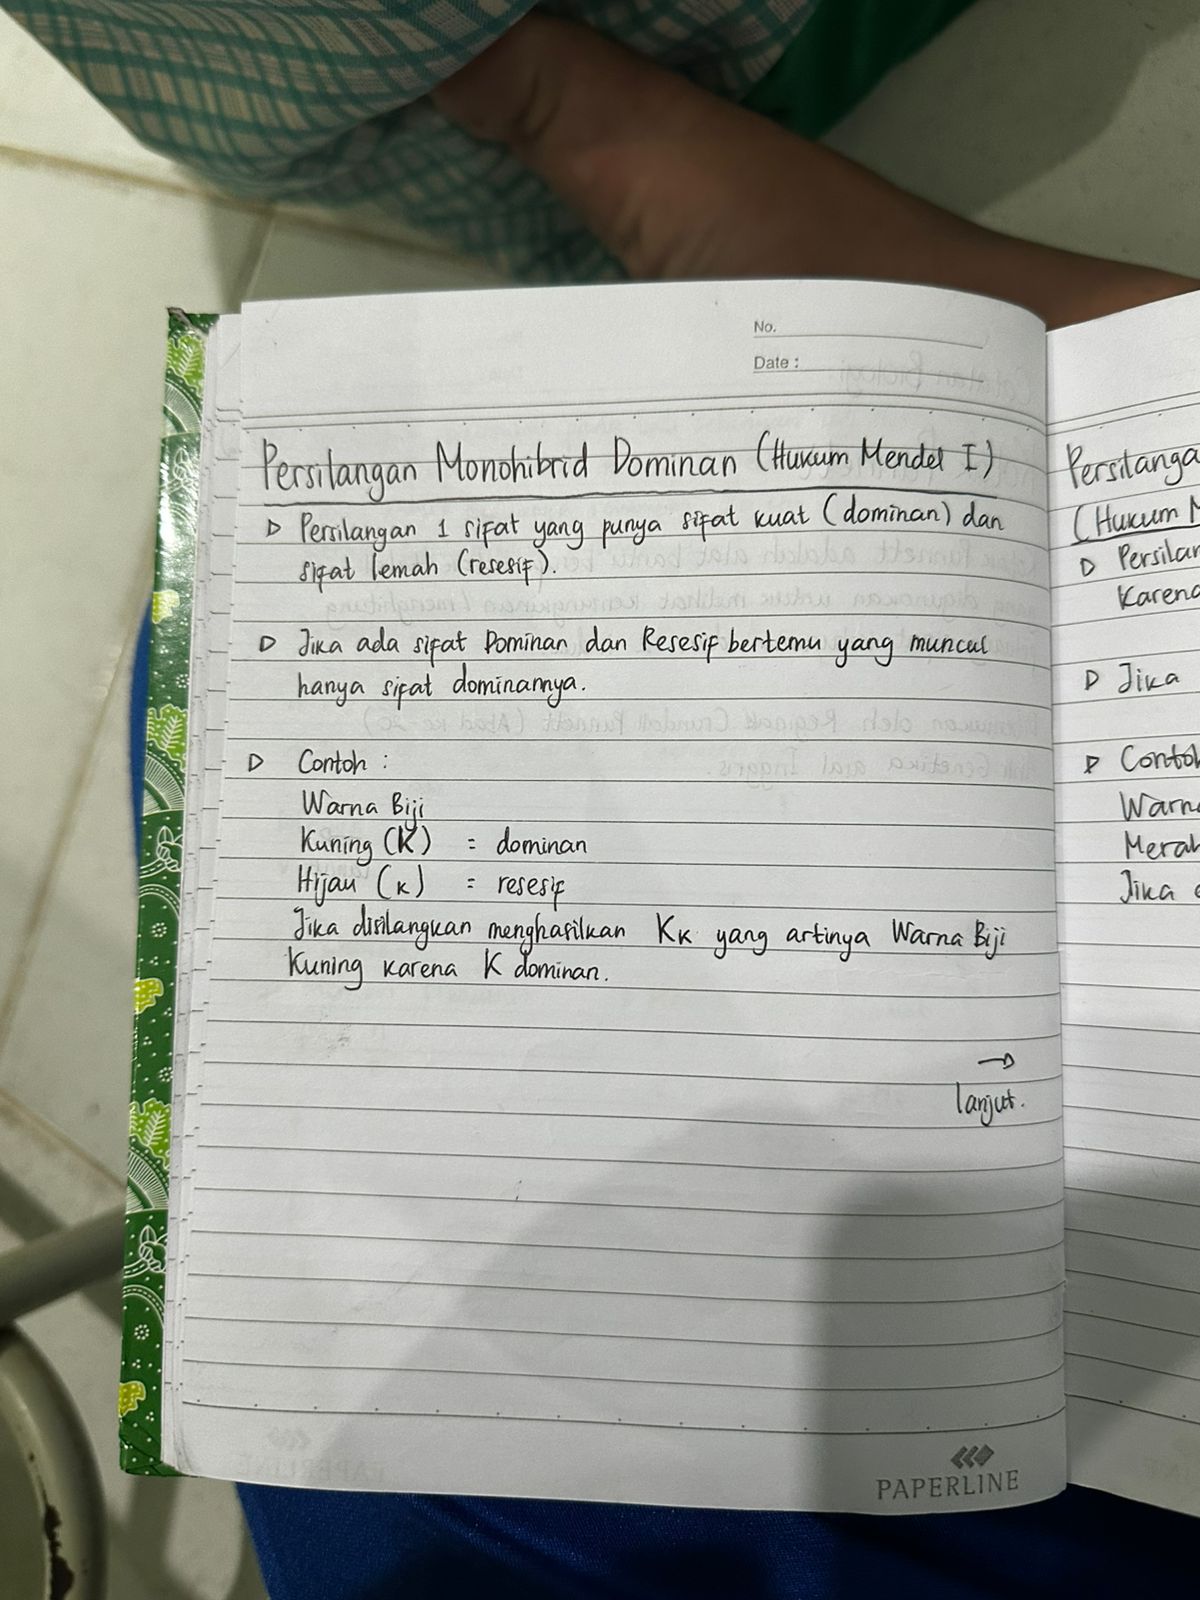 No.
Date :
Persilangan Monohibrid Dominan (Hukum Mendel I)
▷ Persilangan 1 sifat yang punya sifat kuat (dominan) dan
sifat lemah (resesif).
▷ Jika ada sifat Dominan dan Resesif bertemu yang muncul
hanya sifat dominannya.
▷ Contoh :
Warna Biji
Kuning (K) = dominan
Hijau (k) = resesif
Jika disilangkan menghasilkan Kk yang artinya Warna Biji
Kuning karena K dominan.
→
lanjut.
PAPERLINE
Persilanga
(Hukum M
▷ Persilan
Karena
▷ Jika
▷ Contoh
Warna
Merah
Jika